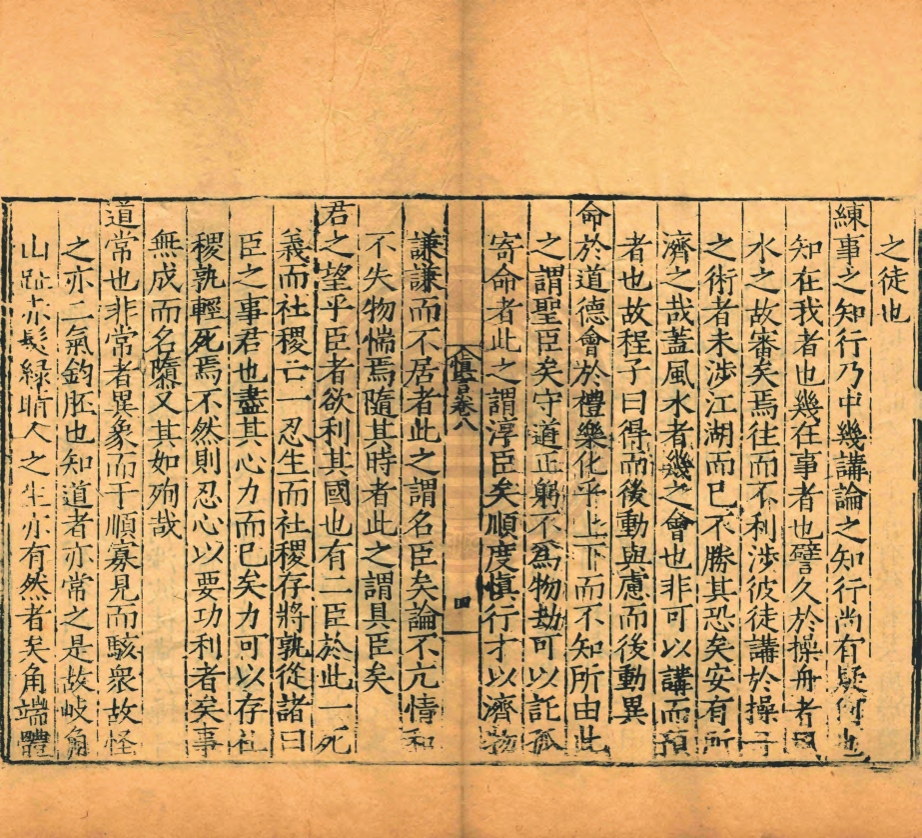 之徒也
練事之知行乃中幾講論之知行尚有疑何也
知在我者也幾在事者也譬久於操舟者風
水之故審矣焉往而不利涉彼徒講於操舟
之術者未涉江湖而已不勝其恐矣安有所
濟之哉蓋風水者幾之會也非可以講而預
者也故程子曰得而後動與慮而後動異
命於道德會於禮樂化乎上下而不知所由此
之謂聖臣矣守道正躬不為物劫可以託孤
寄命者此之謂淳臣矣順度慎行才以濟物
慎言卷八
四
謙謙而不居者此之謂名臣矣論不亢情和
不失物惴焉隨其時者此之謂具臣矣
君之望乎臣者欲利其國也有二臣於此一死
義而社稷亡一忍生而社稷存將孰從諸曰
臣之事君也盡其心力而已矣力可以存社
稷孰輕死焉不然則忍心以要功利者矣事
無成而名隳又其如殉哉
道常也非常者異象而干順寡見而駭衆故怪
之亦二氣鈞胚也知道者亦常之是故岐角
山趾赤髮綠睛人之生亦有然者矣角端體